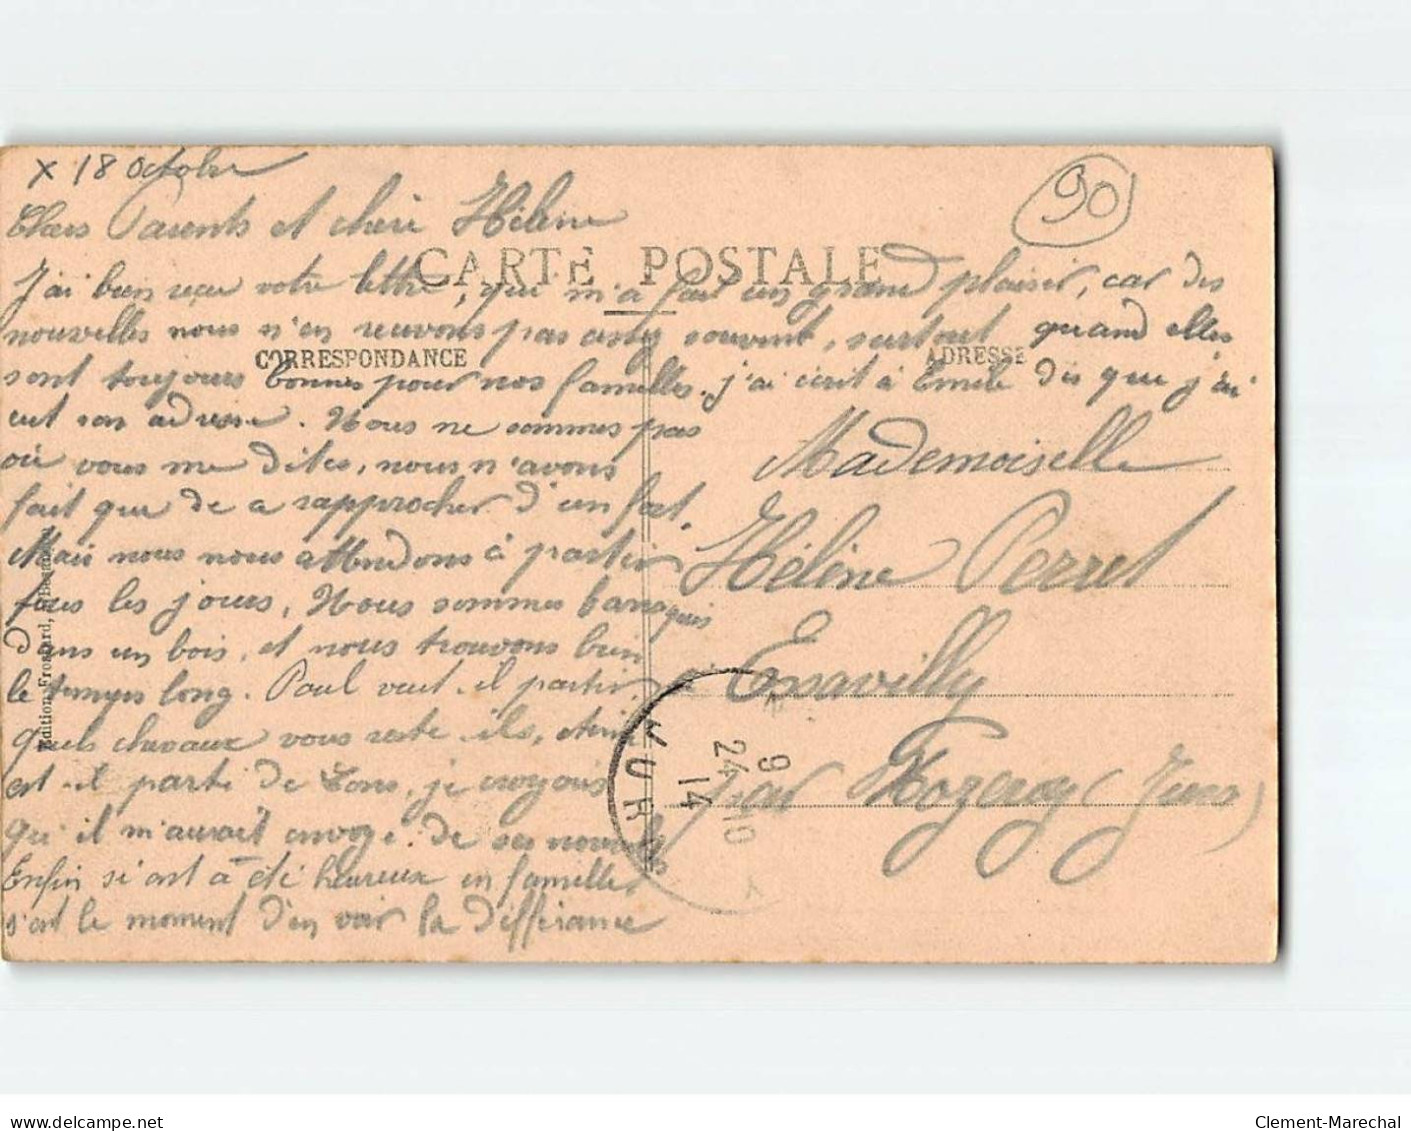 x 18 Octobre
90
Chers Parents et chère Hélène
CARTE POSTALE
J'ai bien reçu votre lettre, qui m'a fait un grand plaisir, car des
nouvelles nous n'en recevons pas assez souvent, surtout quand elles
CORRESPONDANCE
ADRESSE
sont toujours bonnes pour nos familles. j'ai écrit à Emile dès que j'ai
eut son adresse. Nous ne sommes pas
où vous me dites, nous n'avons
fait que de a rapprocher d'un fort.
Mais nous nous attendons à partir
tous les jours, Nous sommes baraqués
dans un bois, et nous trouvons bien
le temps long. Paul vat-il partir,
quels chevaux vous reste-ils,
est-il partie de Lons, je croyais
qu'il m'aurait envoyé de ses nouvelles
Enfin si ont a été heureux en familles
s'est le moment d'en voir la différance
Mademoiselle
Hélène Perret
à
par Nozeroy (Jura)
Edition Frossard,
JURA
9
24 10
14
Clement-Marechal